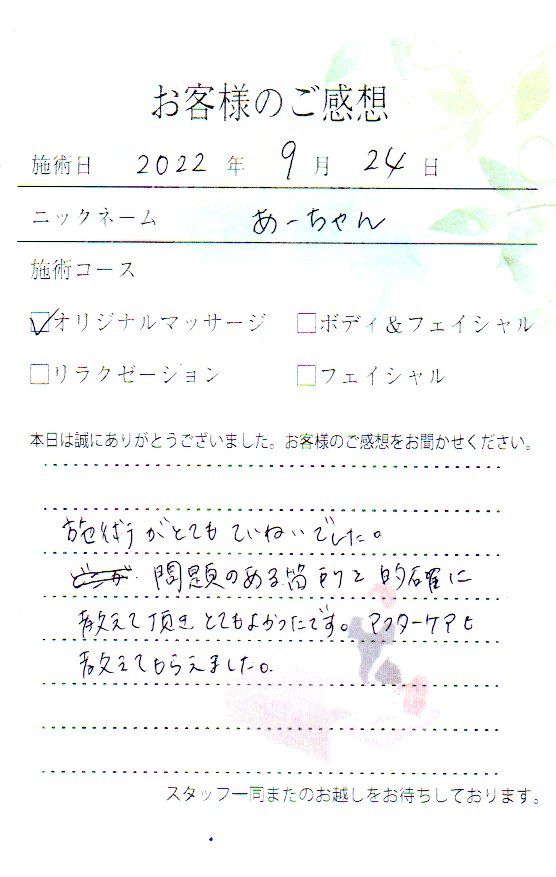 お客様のご感想
施術日 2022 年 9 月 24 日
ニックネーム あーちゃん
施術コース
☑オリジナルマッサージ □ボディ＆フェイシャル
□リラクゼーション □フェイシャル
本日は誠にありがとうございました。お客様のご感想をお聞かせください。
施術がとてもていねいでした。
問題のある箇所を的確に
教えて頂き とてもよかったです。アフターケアも
教えてもらえました。
スタッフ一同またのお越しをお待ちしております。